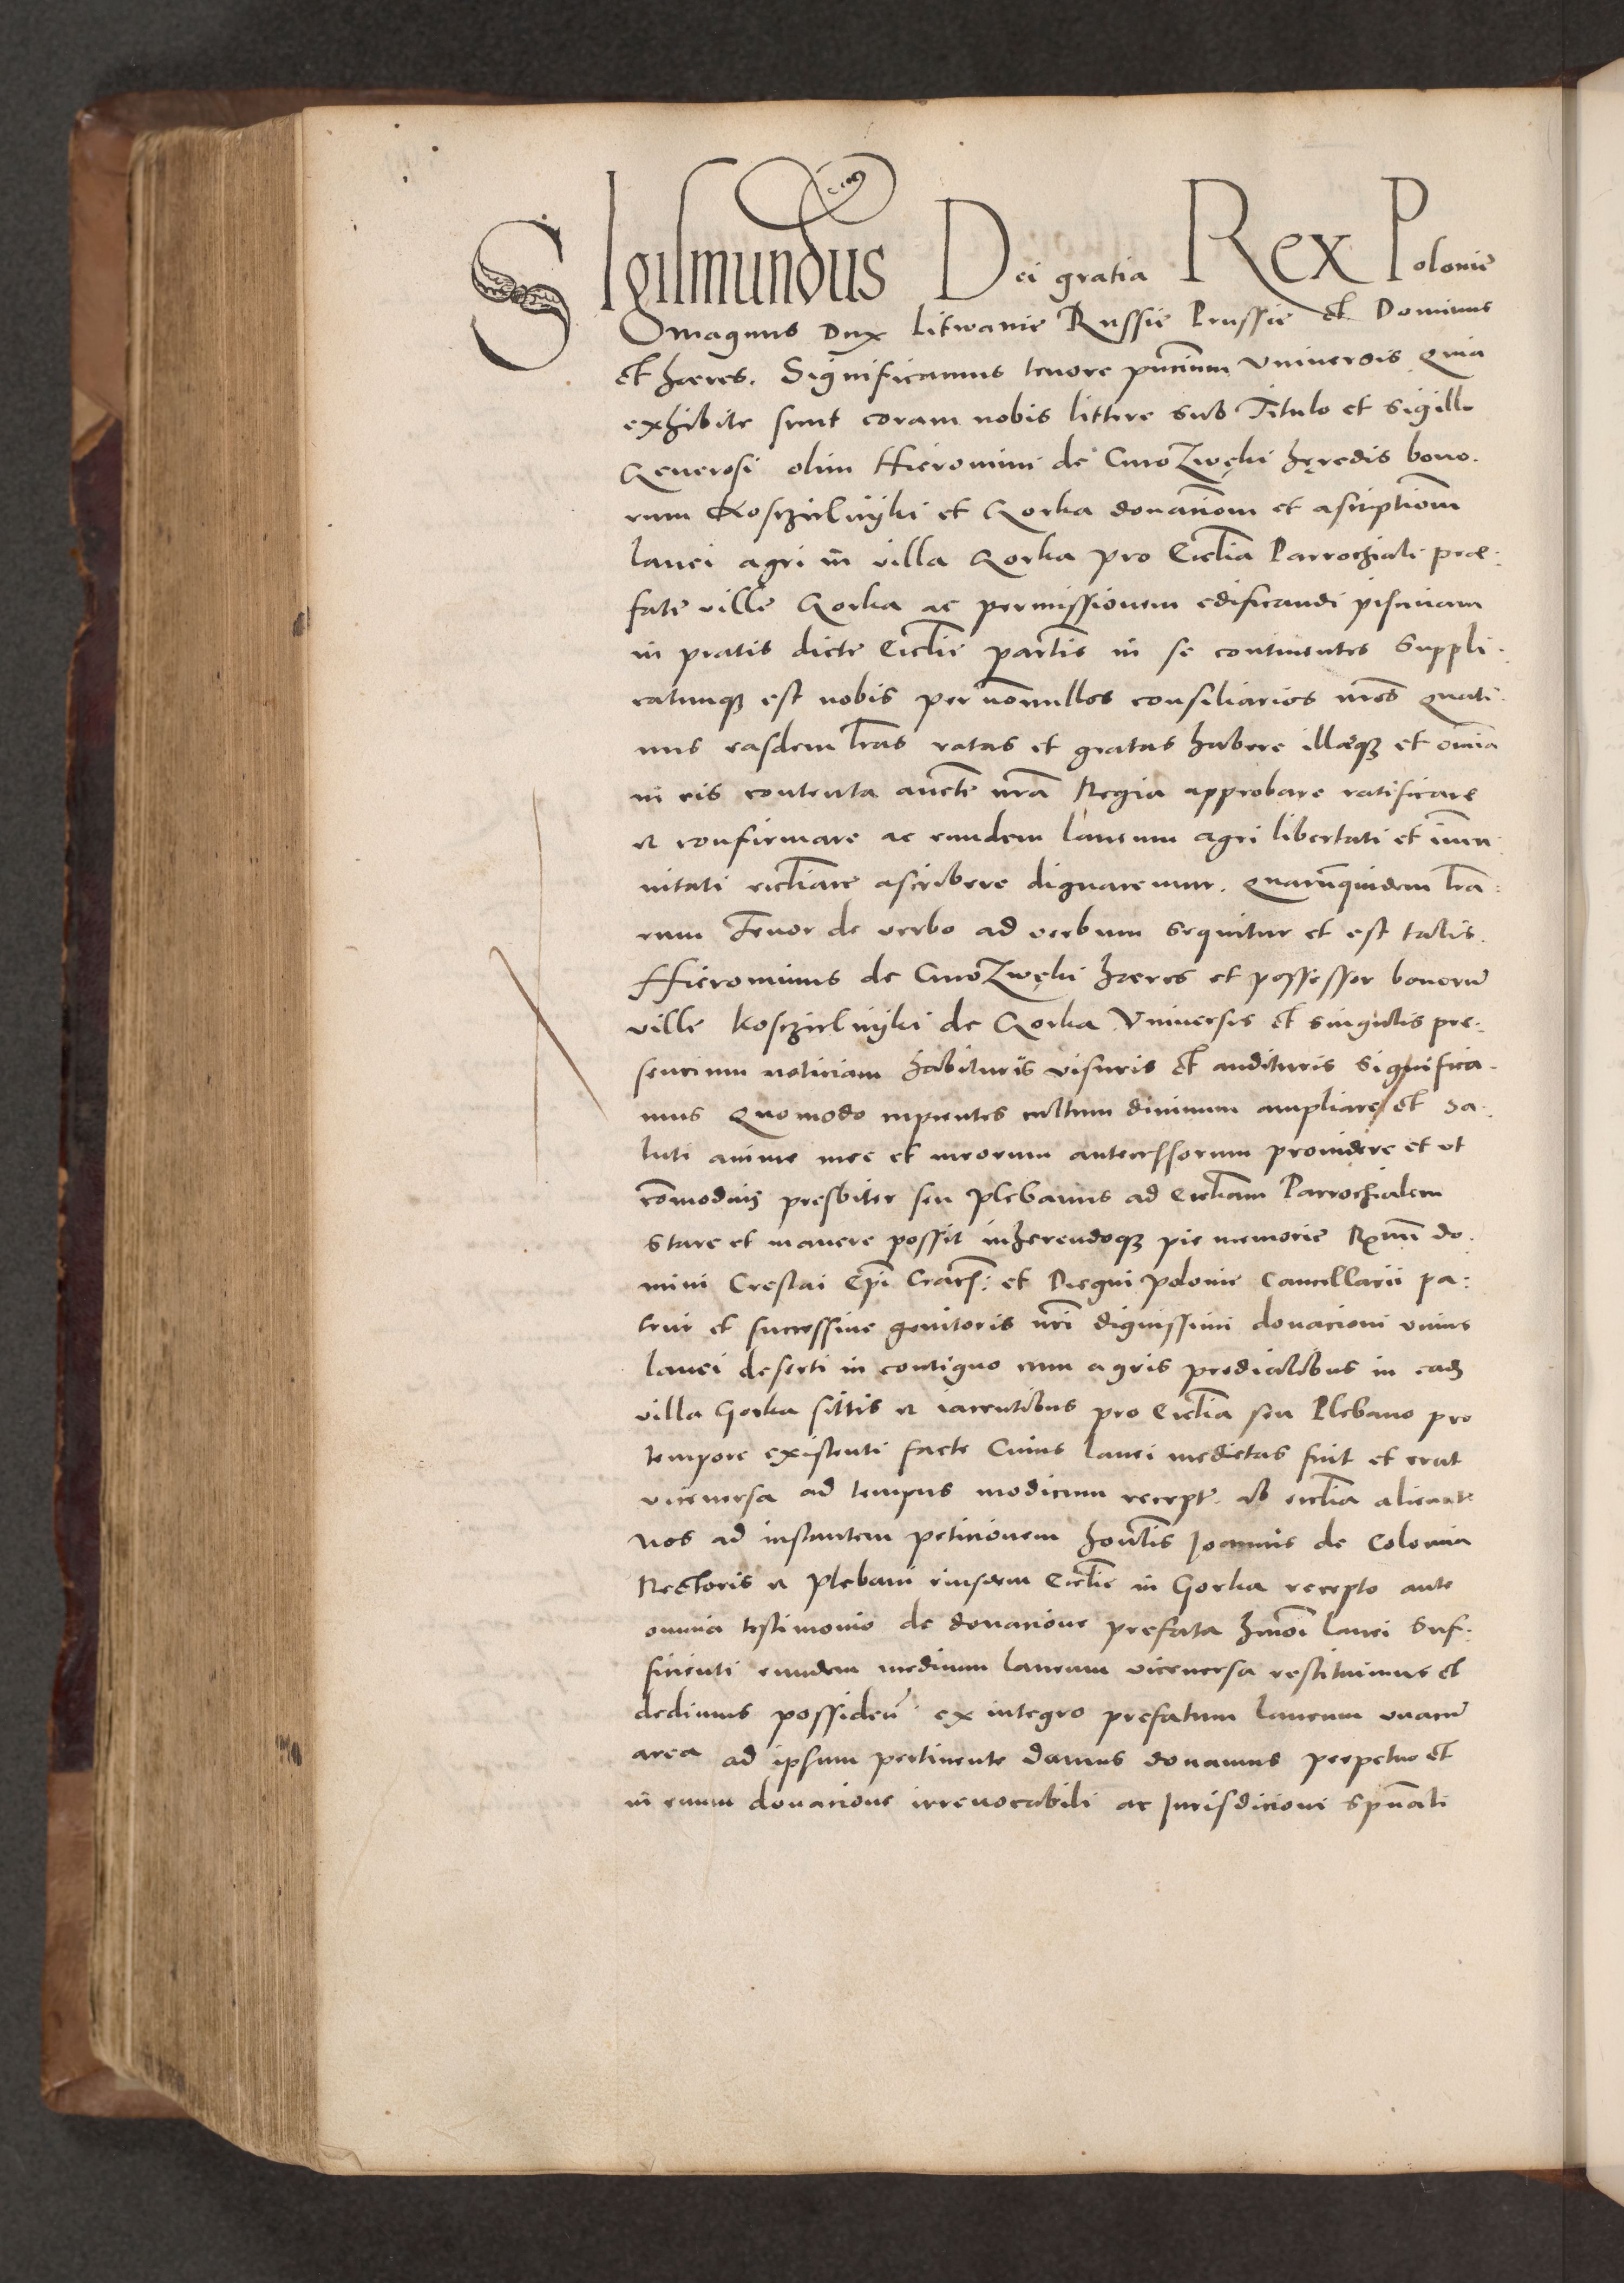 SIgismundus Dei gratia Rex Polonie
magnus Dux Litwanie Russie Prussie et Dominus
et hæres. Significamus tenore pñcium Vniversis Quia
exhibite sunt coram nobis littere sub Titulo et sigillo
Generosi olim Hieronimi de CmoZwęki hęredis bono.
rum Kosczielnijki et Gorka donacõem et ascriptiõem
lanei agri in villa Gorka pro Ecclia Parrochiali præ.
fate ville Gorka ac permissionem edificandi piscinam
in pratis dicte Ecclie partis in se continentes Suppli.
catumqz est nobis per nõnnullos consiliarios nrõs Quati.
nus easdem lras ratas et gratas habere illasqz et omia
in eis contenta aucte nrã Regia approbare ratificare
et confirmare ac eundem laneum agri libertati et imu
nitati eccliastice ascribere dignaremur. Quarumquidem lra:
rum Tenor de verbo ad verbum sequitur et est talis.
Hieronimus de CmoZwęki hæres et possessor bonorũ
ville Kosczielnijki de Gorka Vniversis et singulis pre.
sencium noticiam habituris visuris et audituris significa.
mus Quomodo cupientes cultum divinum ampliare et sa.
luti anime mee et meorum antecessorum providere et vt
cõmodius presbiter seu plebanus ad Eccliam Parrochialem
stare et manere possit inherendoqz pie memorie Rxmi do.
mini Creslai Epi Cracs: et Regni Polonie Cancellarii pa:
trui et successive genitoris nri dignissimi donacioni vnius
lanei deserti in contiguo cum agris predialibus in eadz
villa Gorka sittis et iacentibus pro Ecclia seu Plebano pro
tempore existenti facte Cuius lanei medietas fuit et erat
viceversa ad tempus modicum recept. ab ecclia alienate
Nos ad instantem peticionem honlis Joannis de Colonia
Rectoris et plebani eiusdem Ecclie in Gorka recepto ante
omnia testimonio de donacione prefata hmõi lanei suf.
ficienti eundem medium laneum viceversa restituimus et
dedimus possidend ex integro prefatum laneum vnacũ
area ad ipsum pertinente damus donamus perpetuo et
in evum donacione irrevocabili ac Jurisdicioni spũali